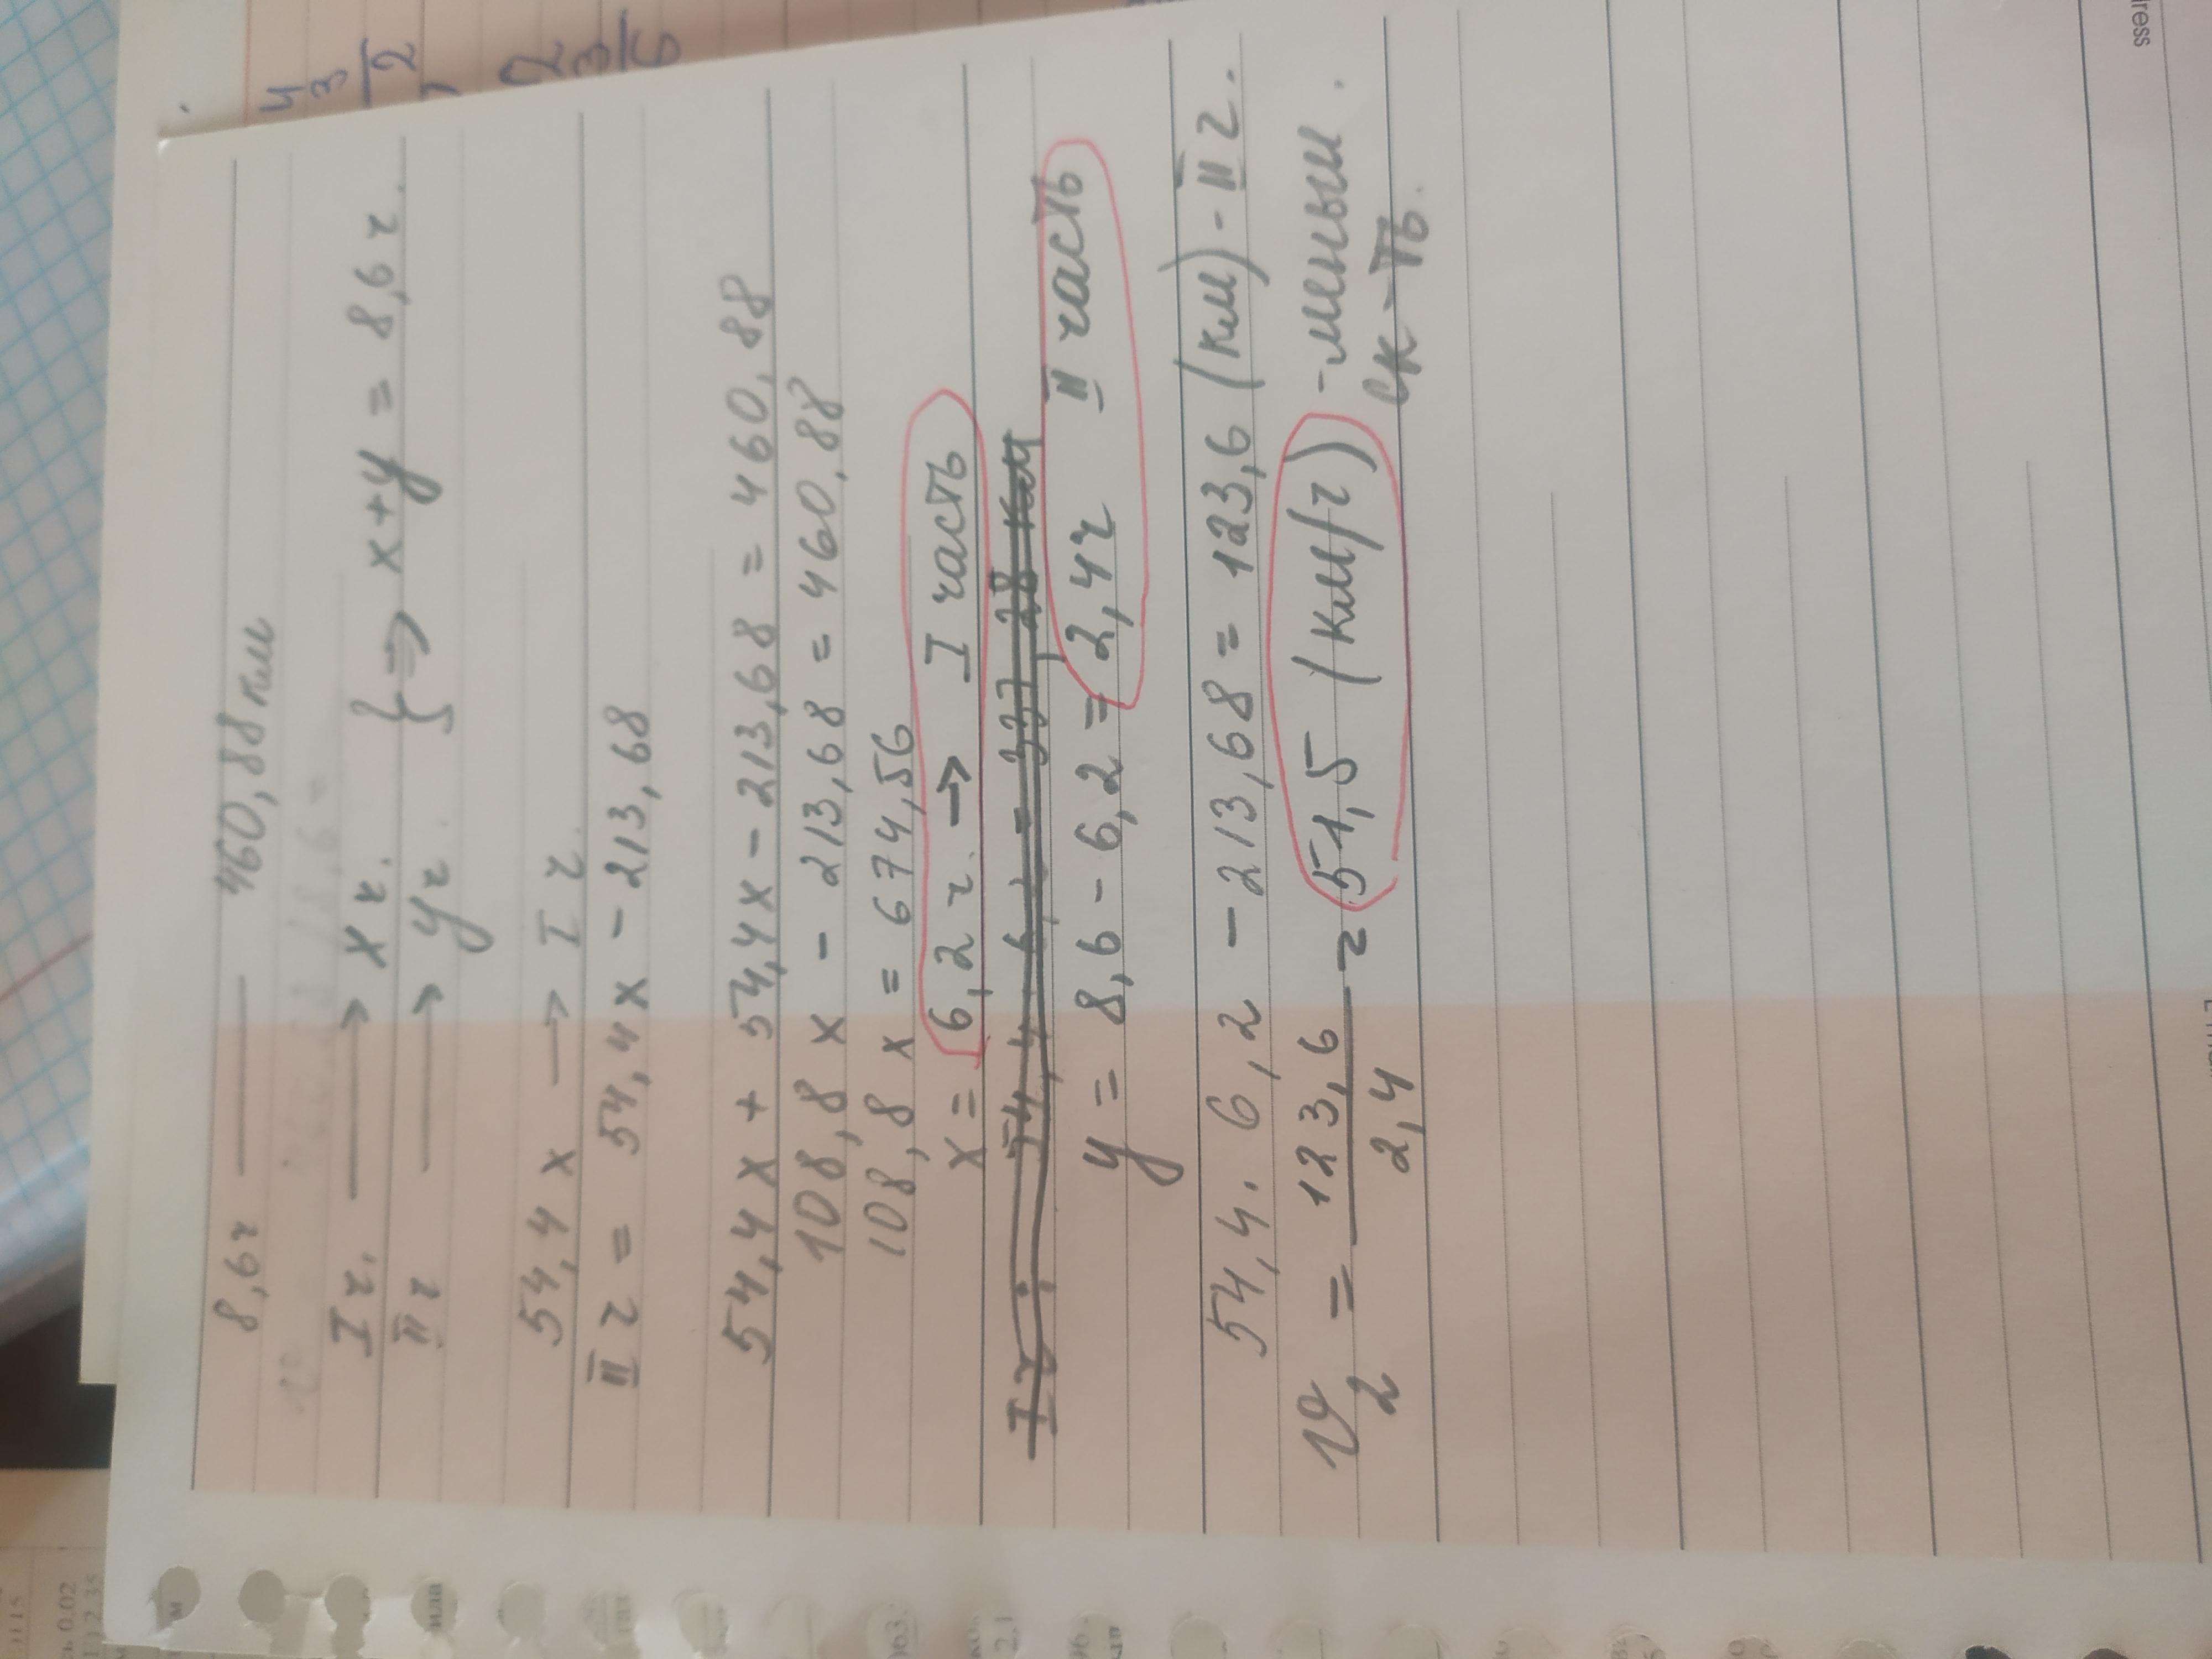 8,6ч — 460,88 км
I ч. → x ч. } ⇒ x+y = 8,6 ч.
II ч → y ч
54,4 x → I ч.
II ч = 54,4 x - 213,68
54,4 x + 54,4 x - 213,68 = 460,88
108,8 x - 213,68 = 460,88
108,8 x = 674,56
x = 6,2 ч. → I часть
y = 8,6 - 6,2 = 2,4ч II часть
54,4 . 6,2 - 213,68 = 123,6 (км) - II ч.
v2 = 123,6 / 2,4 = 51,5 (км/ч) - меньш.
ск-ть.
4
3
2
2
3
6
ress